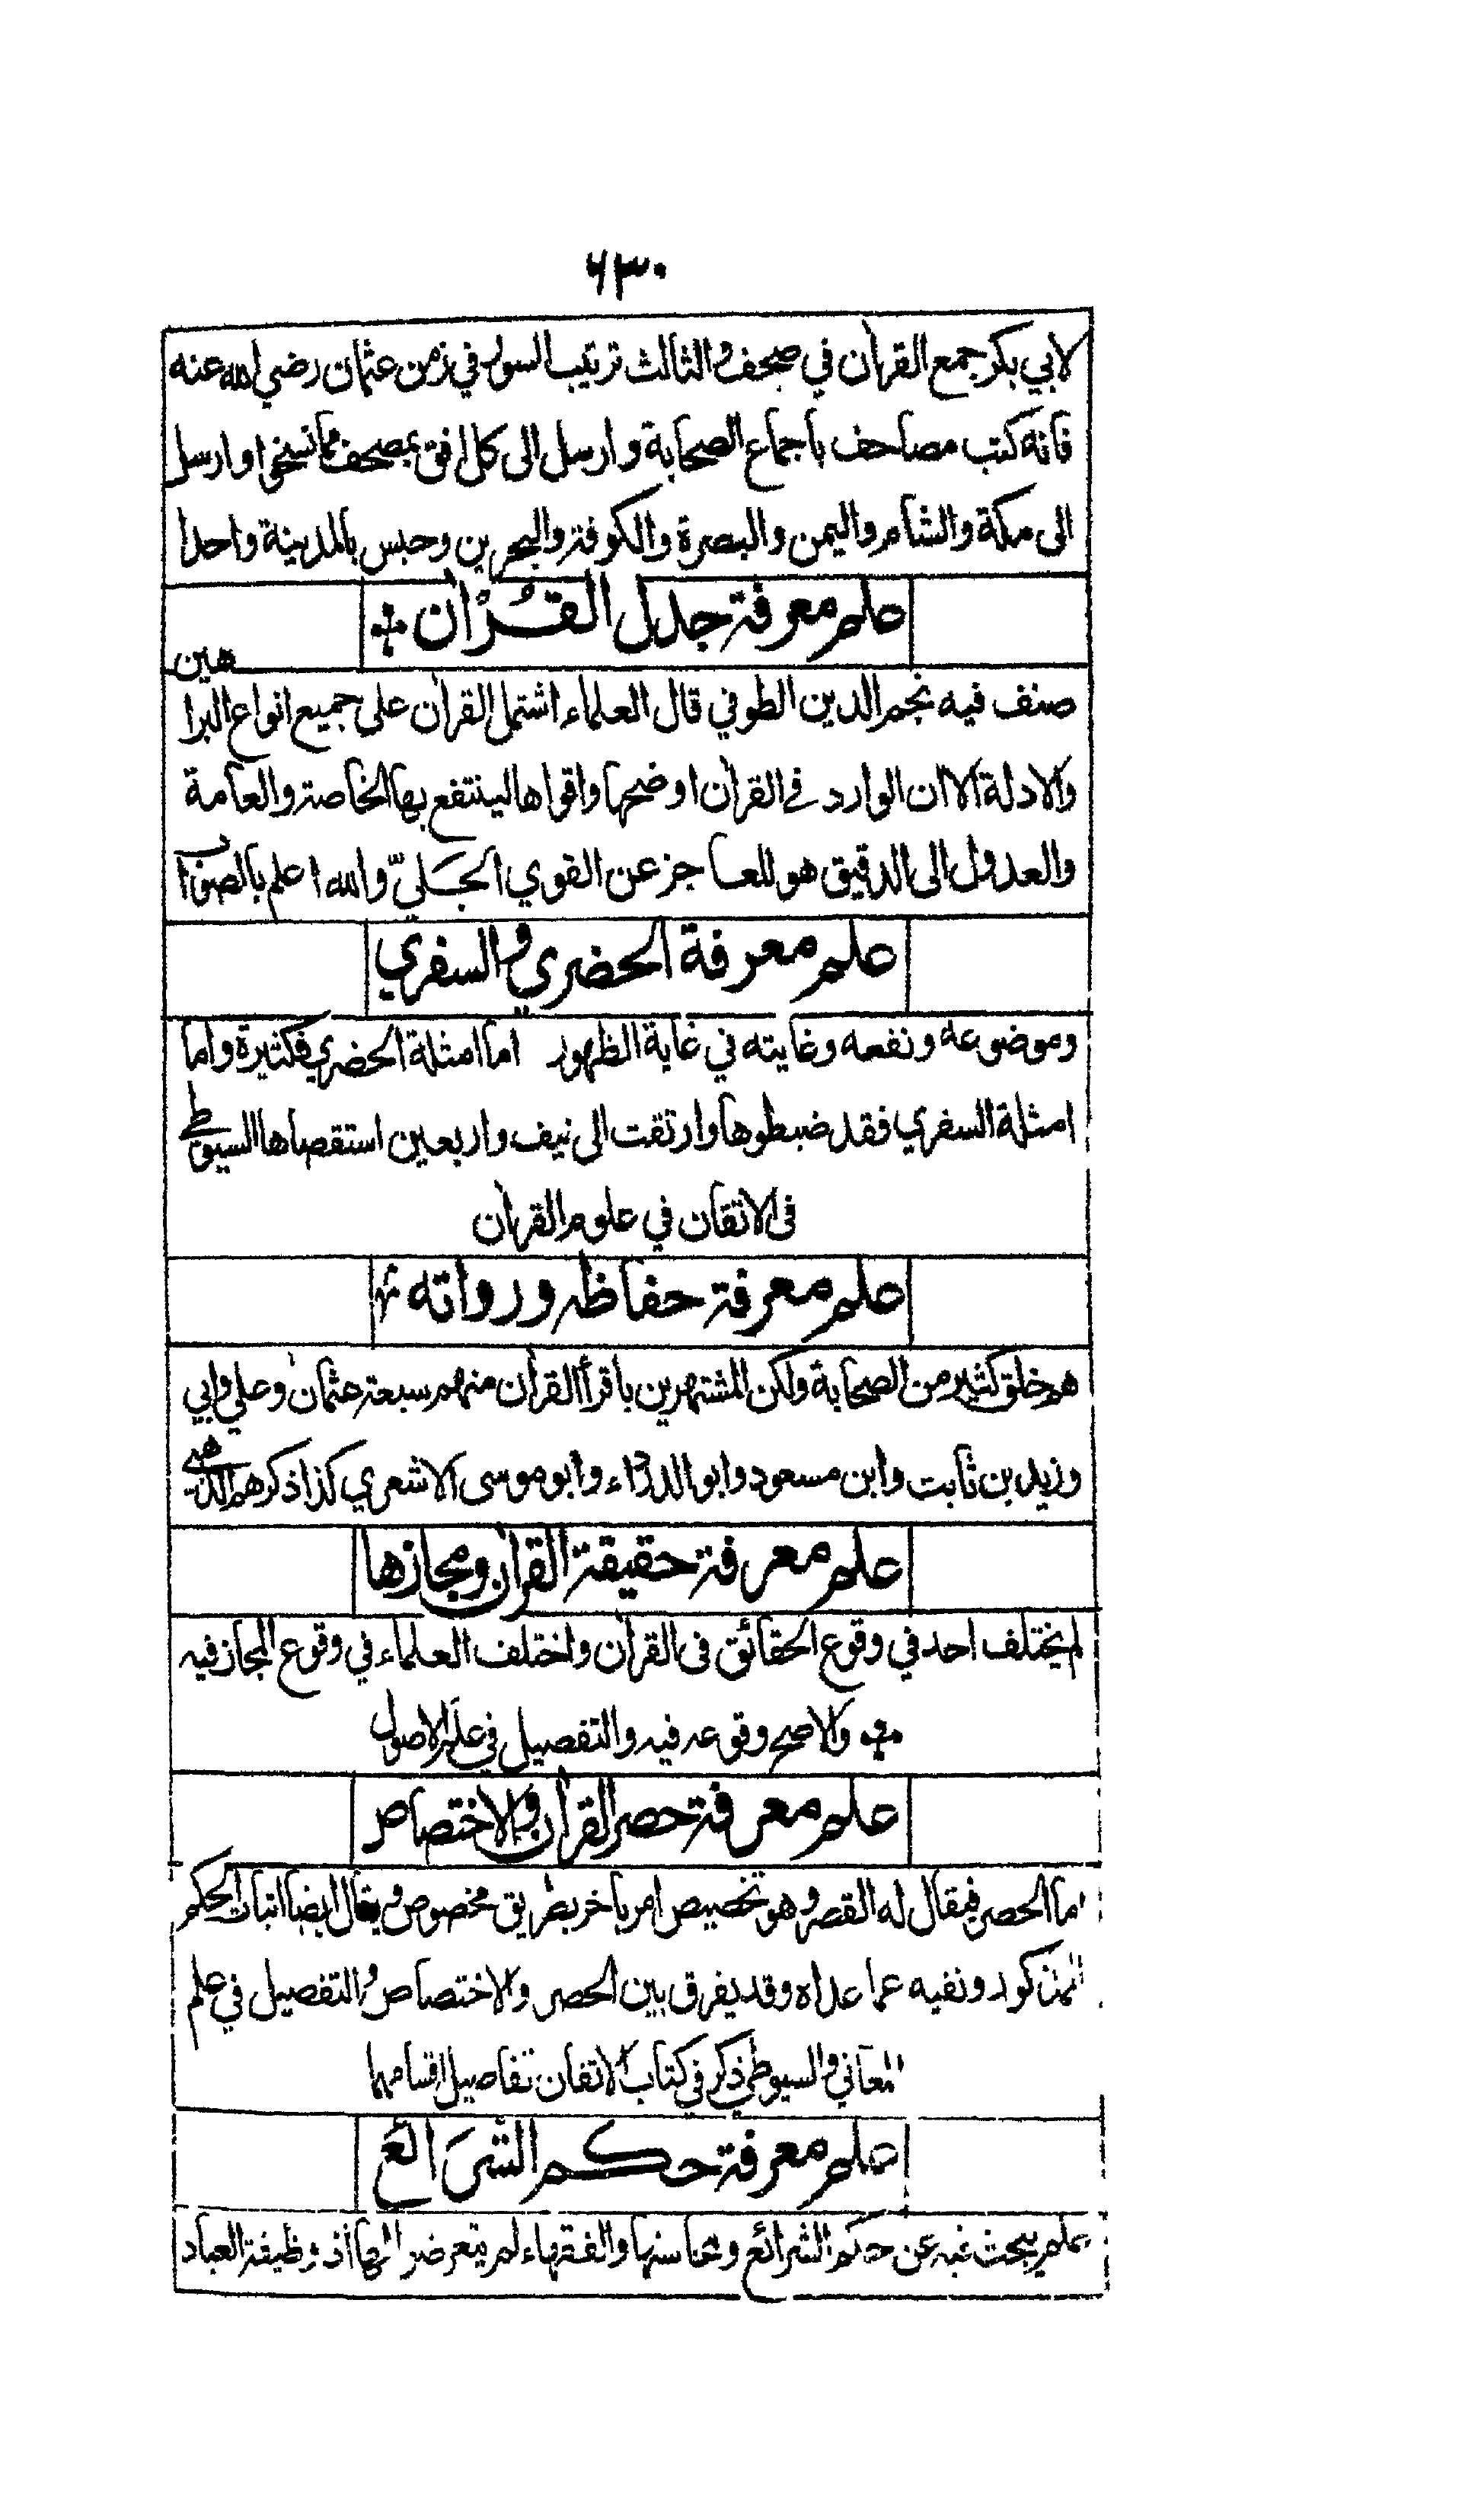 ٦٣٠
لابي بكر جمع القران في صحف والثالث ترتيب السور في زمن عثمان رضي الله عنه
فانه كتب مصاحف باجماع الصحابة وارسل الى كل افق بمصحف مما نسخوا وارسل
الى مكة والشام واليمن والبصرة والكوفة والبحرين وحبس بالمدينة واحدا
علم معرفة جدل القُرْان
صنف فيه نجم الدين الطوفي قال العلماء اشتمل القران على جميع انواع البراهين
والادلة الا ان الوارد في القران اوضحها واقواها لينتفع بها الخاصة والعامة
والعدول الى الدقيق هو للعاجز عن القوي الجَليّ والله اعلم بالصواب
علم معرفة الحضري والسفري
وموضوعه ونفعه وغايته في غاية الظهور اما امثلة الحضري فكثيرة واما
امثلة السفري فقد ضبطوها وارتقت الى نيف واربعين استقصاها السيوطي
في الاتقان في علوم القران
علم معرفة حفاظه ورواته
هو خلق كثير من الصحابة ولكن المشتهرين باقرأ القران منهم سبعة عثمان وعلي وابي
وزيد بن ثابت وابن مسعود وابو الدرداء وابو موسى الاشعري كذا ذكرهم الذهبي
علم معرفة حقيقة القران ومجازها
لم يختلف احد في وقوع الحقائق في القران واختلف العلماء في وقوع المجاز فيه
والاصح وقوعه فيه والتفصيل في علم الاصول
علم معرفة حصر القران والاختصاص
اما الحصر فيقال له القصر وهو تخصيص امر باخر بطريق مخصوص ويقال ايضا اثبات الحكم
للمذكور ونفيه عما عداه وقد يفرق بين الحصر والاختصاص والتفصيل في علم
المعاني والسيوطي ذكر في كتاب الاتقان تفاصيل اقسامهما
علم معرفة حكم الشرائع
علم يبحث فيه عن حكم الشرائع ومحاسنها والفقهاء لم يتعرضوا لها اذ وظيفة العباد